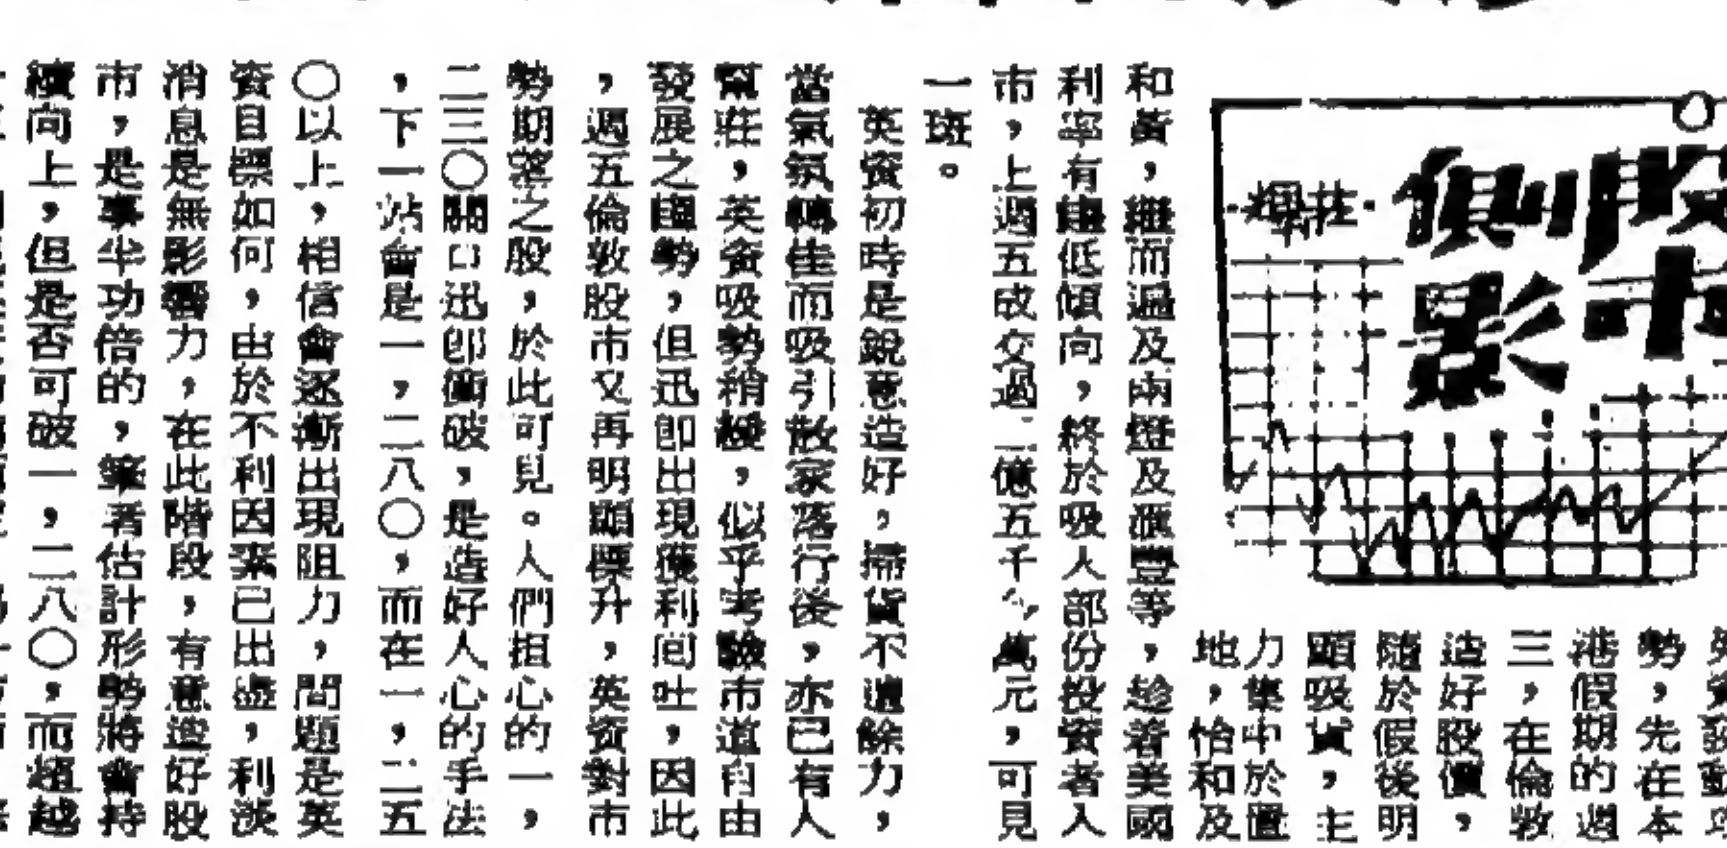 股市
側影
勢，先在本
港假期的週
三，在倫敦
造好股價，
隨於假後明
顯吸貨，主
力集中於置
地，怡和及
和黃，繼而遍及兩燈及滙豐等，趁着美國
利率有低傾向，終於吸人部份投資者入
市，上週五成交過二億五千萬元，可見
一斑。
英資初時是銳意造好，掃貨不遺餘力，
當氣氛轉佳而吸引散家落行後，亦已有人
幫莊，英資吸勢稍緩，似乎考驗市道自由
發展之趨勢，但迅即出現獲利回吐，因此
，週五倫敦股市又再明顯標升，英資對市
勢期望之殷，於此可見。人們担心的一，
二三〇關口迅即衝破，是造好人心的手法
，下一站會是一，二八〇，而在一，二五
〇以上，相信會逐漸出現阻力，問題是英
資目標如何，由於不利因素已出盡，利淡
消息是無影響力，在此階段，有意造好股
市，是事半功倍的，筆者估計形勢將會持
續向上，但是否可破一，二八〇，而超越